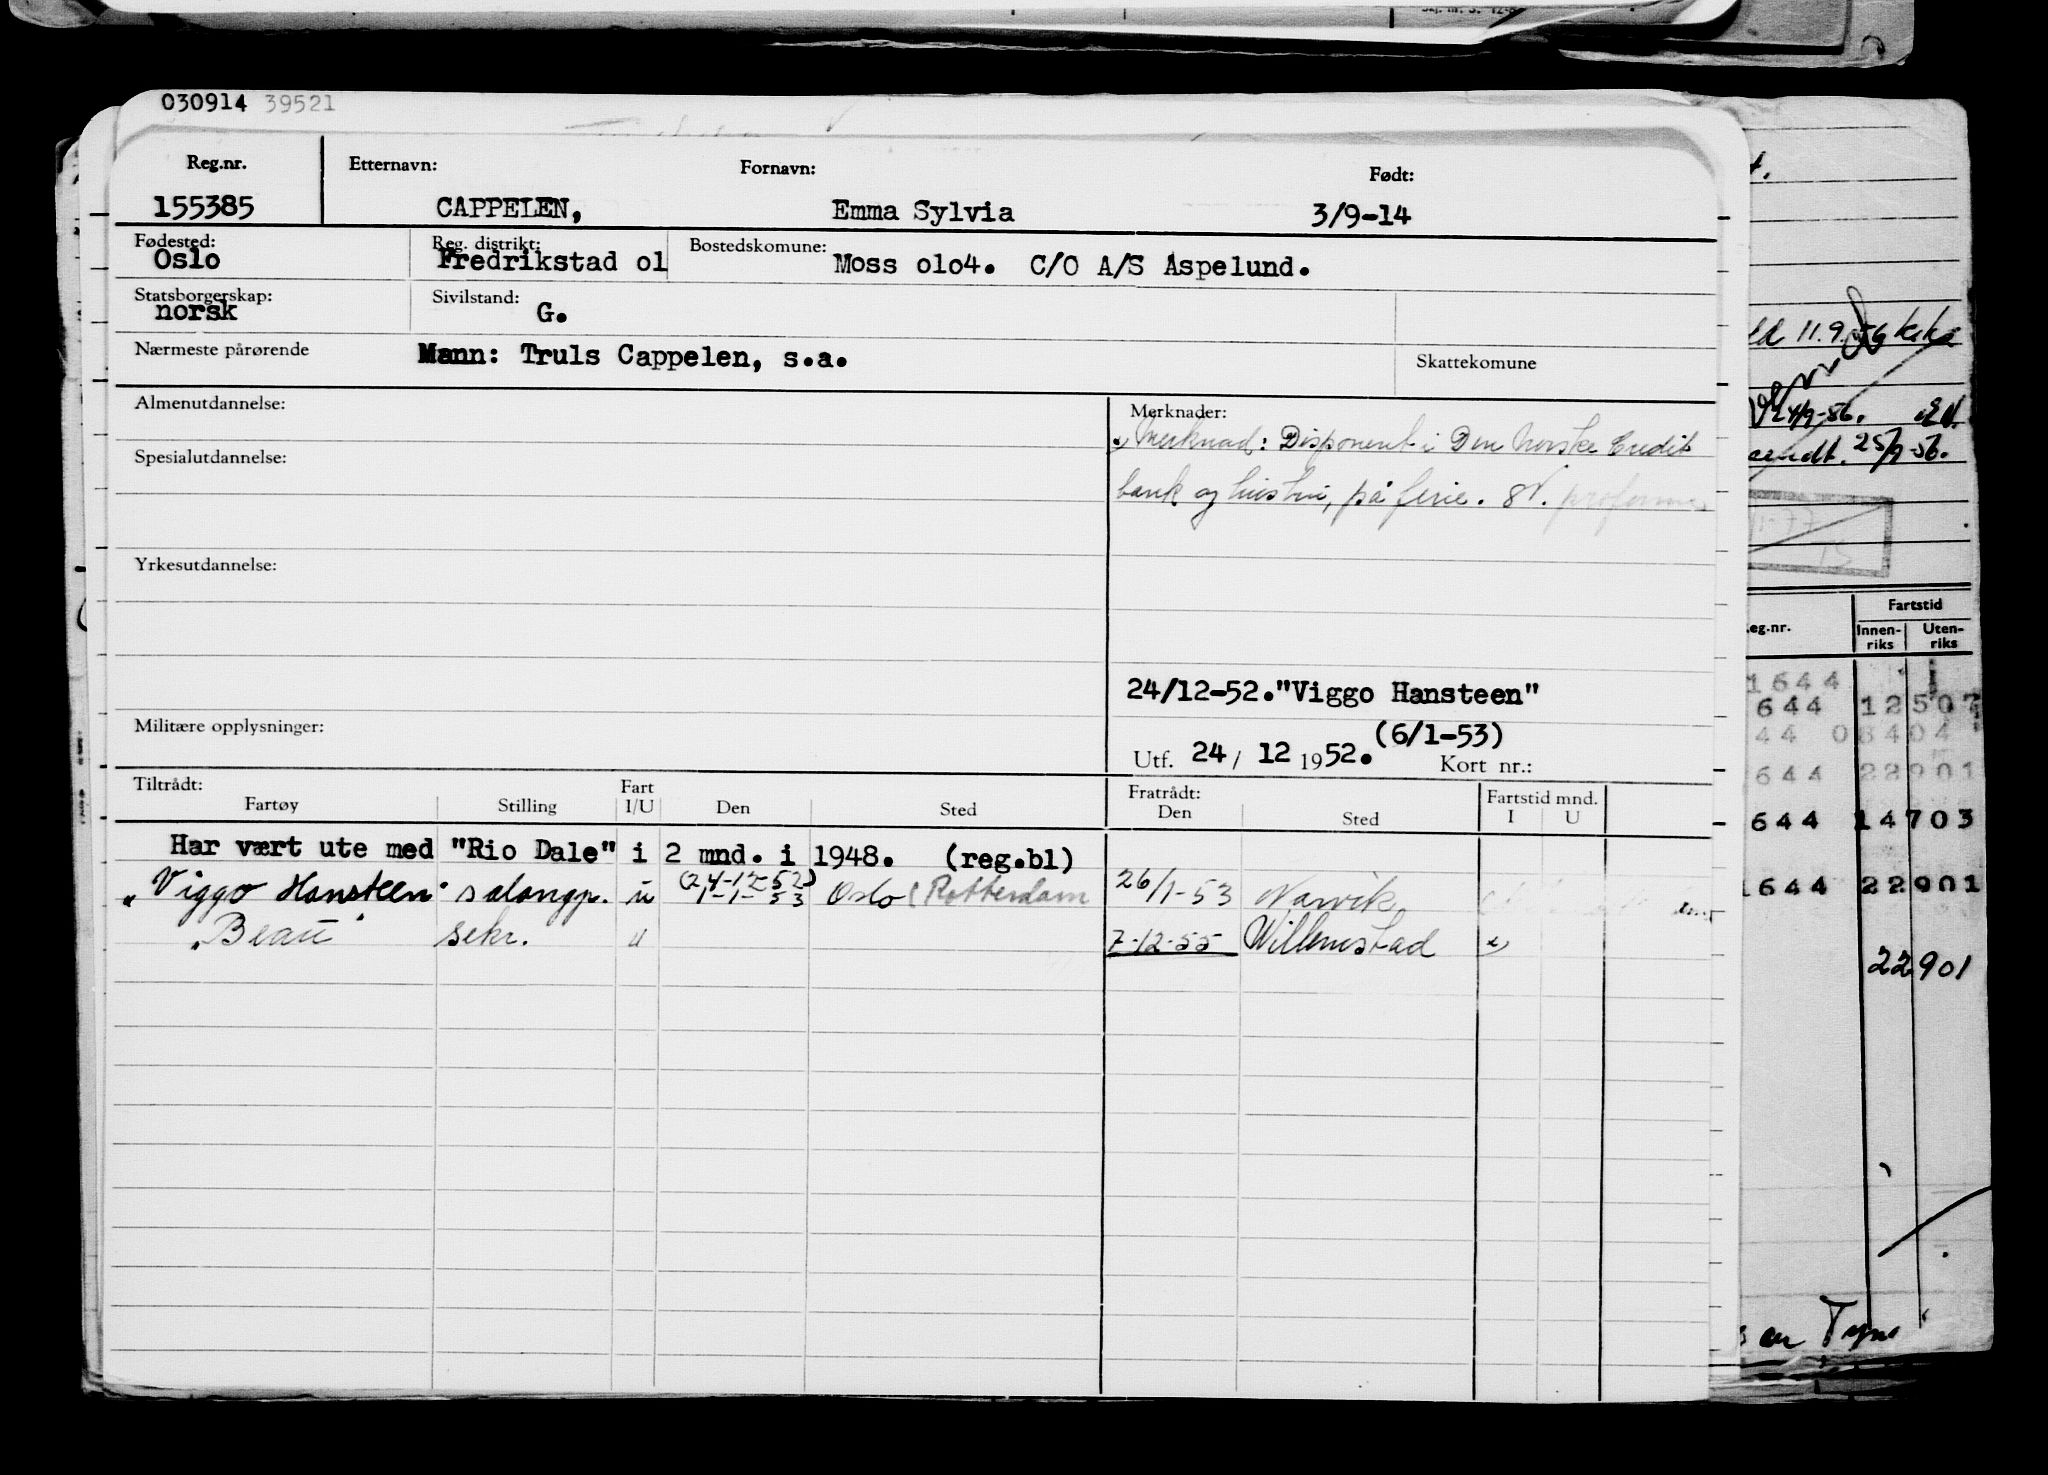 030914 39521
Reg.nr. Etternavn: Fornavn: Født:
155385 CAPPELEN, Emma Sylvia 3/9-14
Fødested: Reg. distrikt: Bostedskomune:
Oslo Fredrikstad ol Moss olo4. C/O A/S Aspelund.
Statsborgerskap: Sivilstand:
norsk G.
Nærmeste pårørende Mann: Truls Cappelen, s.a. Skattekomune
Almenutdannelse: Merknader:
Merknad: Disponent i Den Norske Credit
Spesialutdannelse:
bank og hustru, på ferie.
Yrkesutdannelse:
24/12-52. "Viggo Hansteen"
Militære opplysninger: (6/1-53)
Utf. 24/ 12 1952. Kort nr.:
Tiltrådt: Fratrådt: Fartstid mnd.
Fartøy Stilling Fart I/U Den Sted Den Sted I U
Har vært ute med "Rio Dale" i 2 mnd. i 1948. (reg.bl)
"Viggo Hansteen" salongp. u (24-12-52) 1-1-53 Oslo (Rotterdam 26/1-53 Narvik
"Beau" sekr. u 7-12-55 Willemstad
11.9.56
24/9-56.
sendt. 25/9-56.
eg.nr. Fartstid
Innen-riks Uten-riks
1644
644 12507
44 08404
644 22901
644 14703
1644 22901
22901